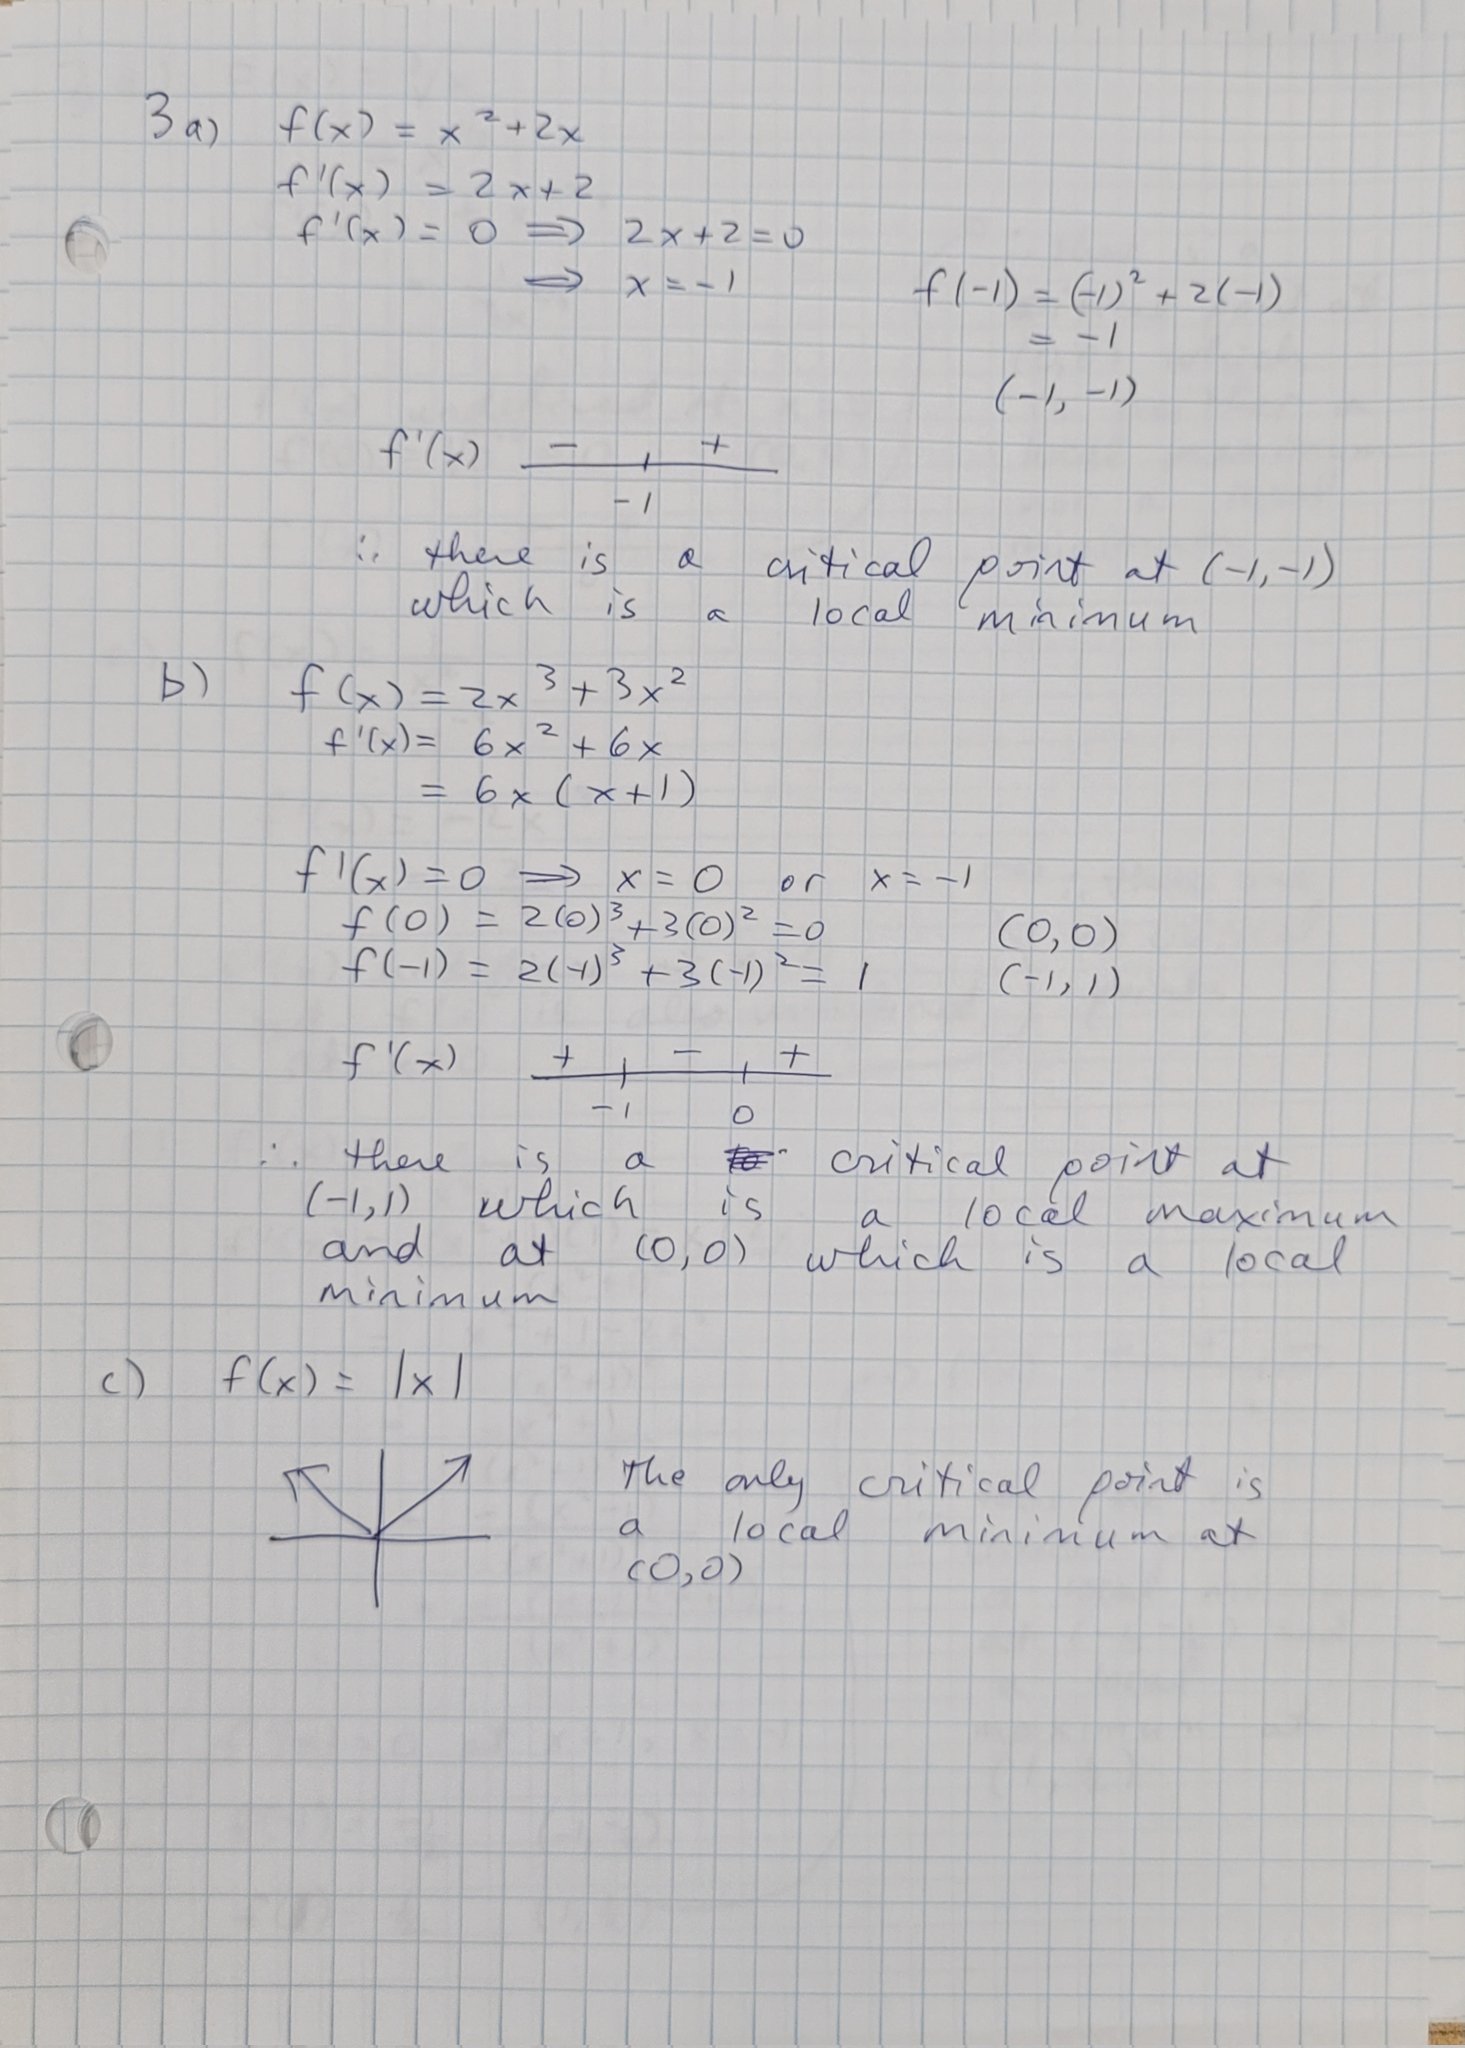 3a) f(x) = x² + 2x
f'(x) = 2x + 2
f'(x) = 0 ⇒ 2x + 2 = 0
⇒ x = -1
f(-1) = (-1)² + 2(-1)
= -1
(-1, -1)
f'(x) - +
-1
∴ there is a critical point at (-1, -1)
which is a local minimum
b) f(x) = 2x³ + 3x²
f'(x) = 6x² + 6x
= 6x (x+1)
f'(x) = 0 ⇒ x = 0 or x = -1
f(0) = 2(0)³ + 3(0)² = 0 (0,0)
f(-1) = 2(-1)³ + 3(-1)² = 1 (-1,1)
f'(x) + - +
-1 0
∴ there is a critical point at
(-1,1) which is a local maximum
and at (0,0) which is a local
minimum
c) f(x) = |x|
The only critical point is
a local minimum at
(0,0)